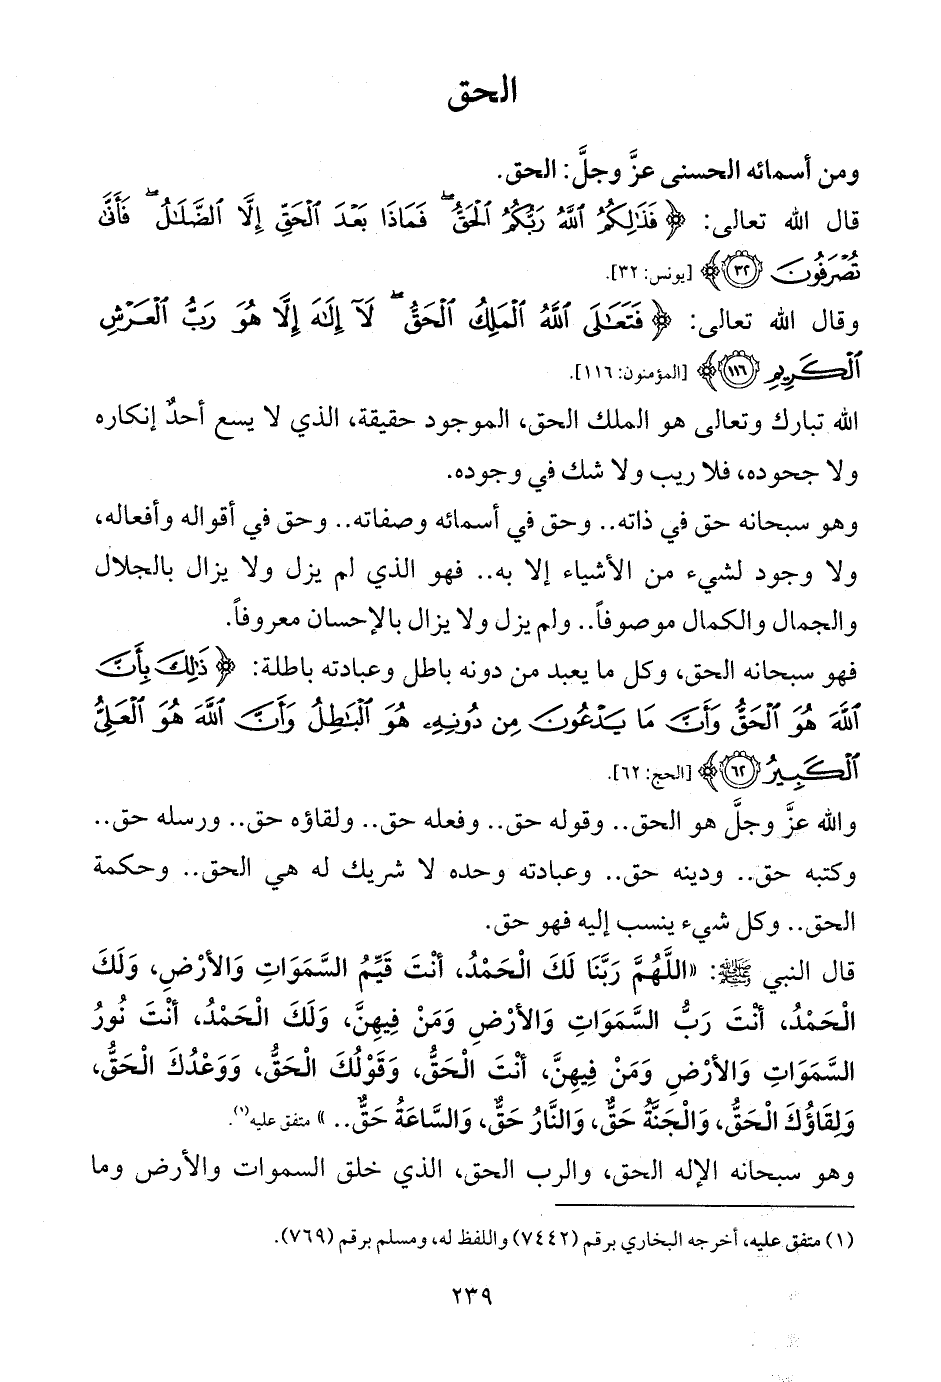 الحق
ومن أسمائه الحسنى عزَّ وجلَّ: الحق.
قال الله تعالى: ﴿فَذَٰلِكُمُ ٱللَّهُ رَبُّكُمُ ٱلْحَقُّ ۖ فَمَاذَا بَعْدَ ٱلْحَقِّ إِلَّا ٱلضَّلَٰلُ ۖ فَأَنَّىٰ
تُصْرَفُونَ ٣٢﴾ [يونس: ٣٢].
وقال الله تعالى: ﴿فَتَعَٰلَى ٱللَّهُ ٱلْمَلِكُ ٱلْحَقُّ ۖ لَآ إِلَٰهَ إِلَّا هُوَ رَبُّ ٱلْعَرْشِ
ٱلْكَرِيمِ ١١٦﴾ [المؤمنون: ١١٦].
الله تبارك وتعالى هو الملك الحق، الموجود حقيقة، الذي لا يسع أحدٌ إنكاره
ولا جحوده، فلا ريب ولا شك في وجوده.
وهو سبحانه حق في ذاته.. وحق في أسمائه وصفاته.. وحق في أقواله وأفعاله،
ولا وجود لشيء من الأشياء إلا به.. فهو الذي لم يزل ولا يزال بالجلال
والجمال والكمال موصوفاً.. ولم يزل ولا يزال بالإحسان معروفاً.
فهو سبحانه الحق، وكل ما يعبد من دونه باطل وعبادته باطلة: ﴿ذَٰلِكَ بِأَنَّ
ٱللَّهَ هُوَ ٱلْحَقُّ وَأَنَّ مَا يَدْعُونَ مِن دُونِهِۦ هُوَ ٱلْبَٰطِلُ وَأَنَّ ٱللَّهَ هُوَ ٱلْعَلِىُّ
ٱلْكَبِيرُ ٦٢﴾ [الحج: ٦٢].
والله عزَّ وجلَّ هو الحق.. وقوله حق.. وفعله حق.. ولقاؤه حق.. ورسله حق..
وكتبه حق.. ودينه حق.. وعبادته وحده لا شريك له هي الحق.. وحكمة
الحق.. وكل شيء ينسب إليه فهو حق.
قال النبي ﷺ: «اللَّهُمَّ رَبَّنَا لَكَ الْحَمْدُ، أَنْتَ قَيِّمُ السَّمَوَاتِ وَالأَرْضِ، وَلَكَ
الْحَمْدُ، أَنْتَ رَبُّ السَّمَوَاتِ وَالأَرْضِ وَمَنْ فِيهِنَّ، وَلَكَ الْحَمْدُ، أَنْتَ نُورُ
السَّمَوَاتِ وَالأَرْضِ وَمَنْ فِيهِنَّ، أَنْتَ الْحَقُّ، وَقَوْلُكَ الْحَقُّ، وَوَعْدُكَ الْحَقُّ،
وَلِقَاؤُكَ الْحَقُّ، وَالْجَنَّةُ حَقٌّ، وَالنَّارُ حَقٌّ، وَالسَّاعَةُ حَقٌّ.. » متفق عليه(١).
وهو سبحانه الإله الحق، والرب الحق، الذي خلق السموات والأرض وما
(١) متفق عليه، أخرجه البخاري برقم (٧٤٤٢) واللفظ له، ومسلم برقم (٧٦٩).
٢٣٩